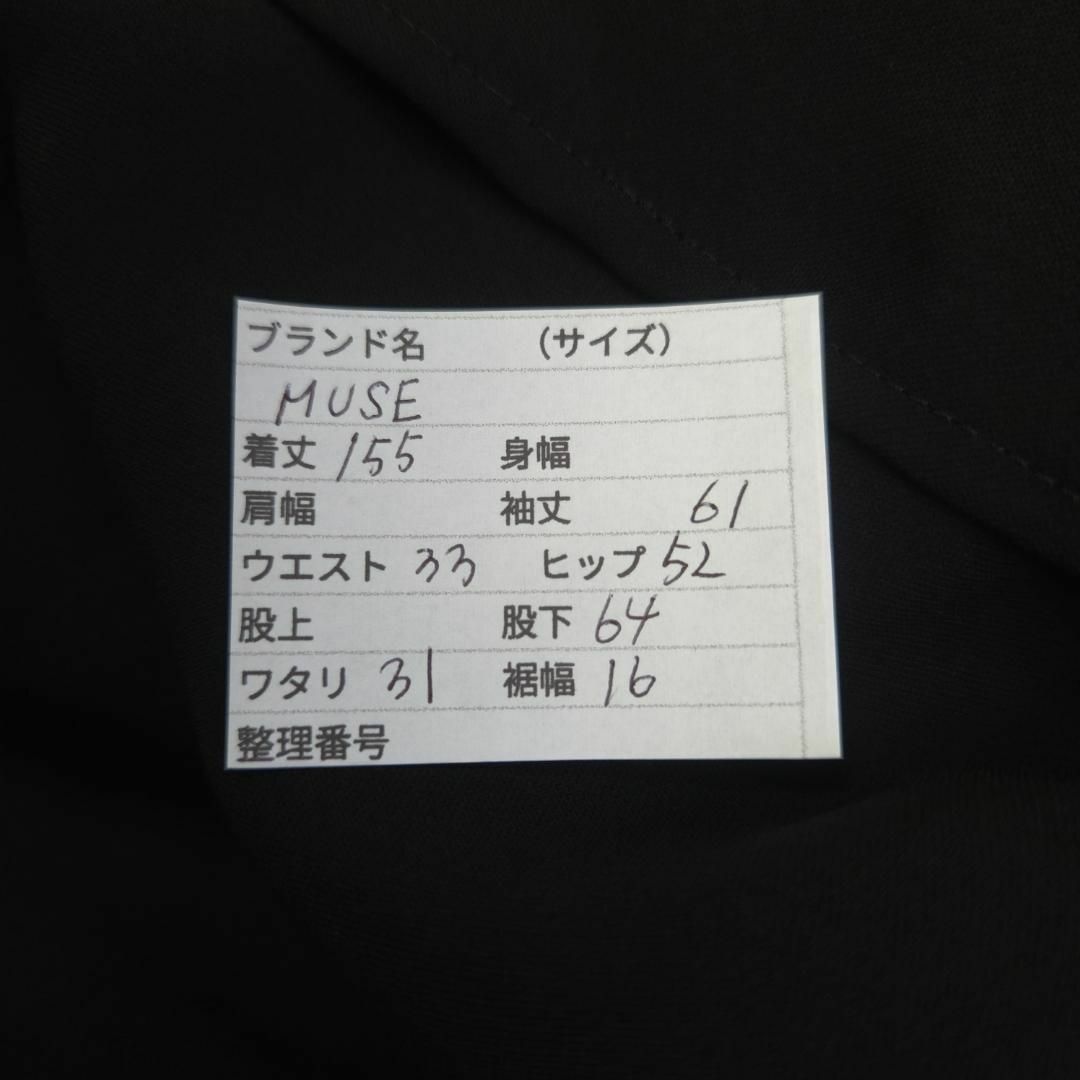 ブランド名 （サイズ）
MUSE
着丈 155 身幅
肩幅 袖丈 61
ウエスト 33 ヒップ 52
股上 股下 64
ワタリ 31 裾幅 16
整理番号